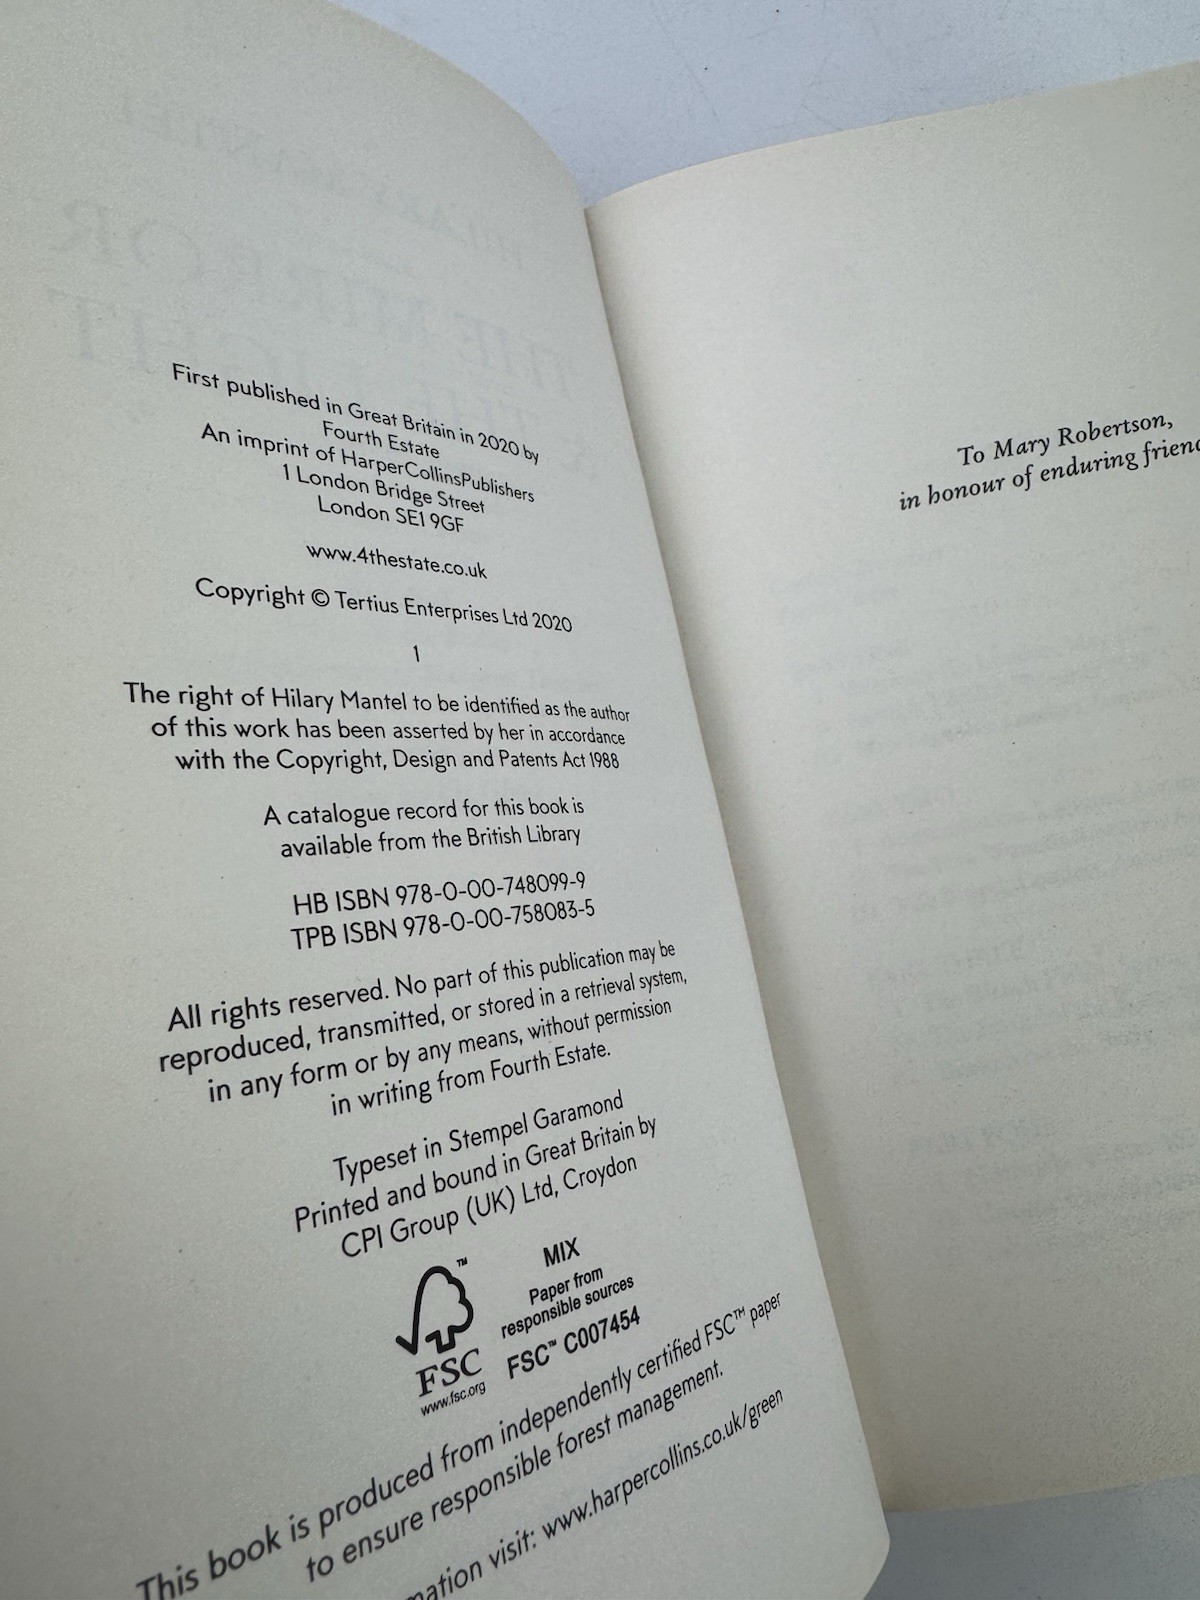 First published in Great Britain in 2020 by
Fourth Estate
An imprint of HarperCollinsPublishers
1 London Bridge Street
London SE1 9GF
www.4thestate.co.uk
Copyright © Tertius Enterprises Ltd 2020
1
The right of Hilary Mantel to be identified as the author
of this work has been asserted by her in accordance
with the Copyright, Design and Patents Act 1988
A catalogue record for this book is
available from the British Library
HB ISBN 978-0-00-748099-9
TPB ISBN 978-0-00-758083-5
All rights reserved. No part of this publication may be
reproduced, transmitted, or stored in a retrieval system,
in any form or by any means, without permission
in writing from Fourth Estate.
Typeset in Stempel Garamond
Printed and bound in Great Britain by
CPI Group (UK) Ltd, Croydon
FSC™
www.fsc.org
MIX
Paper from
responsible sources
FSC™ C007454
This book is produced from independently certified FSC™ paper
to ensure responsible forest management.
visit: www.harpercollins.co.uk/green
To Mary Robertson,
in honour of enduring